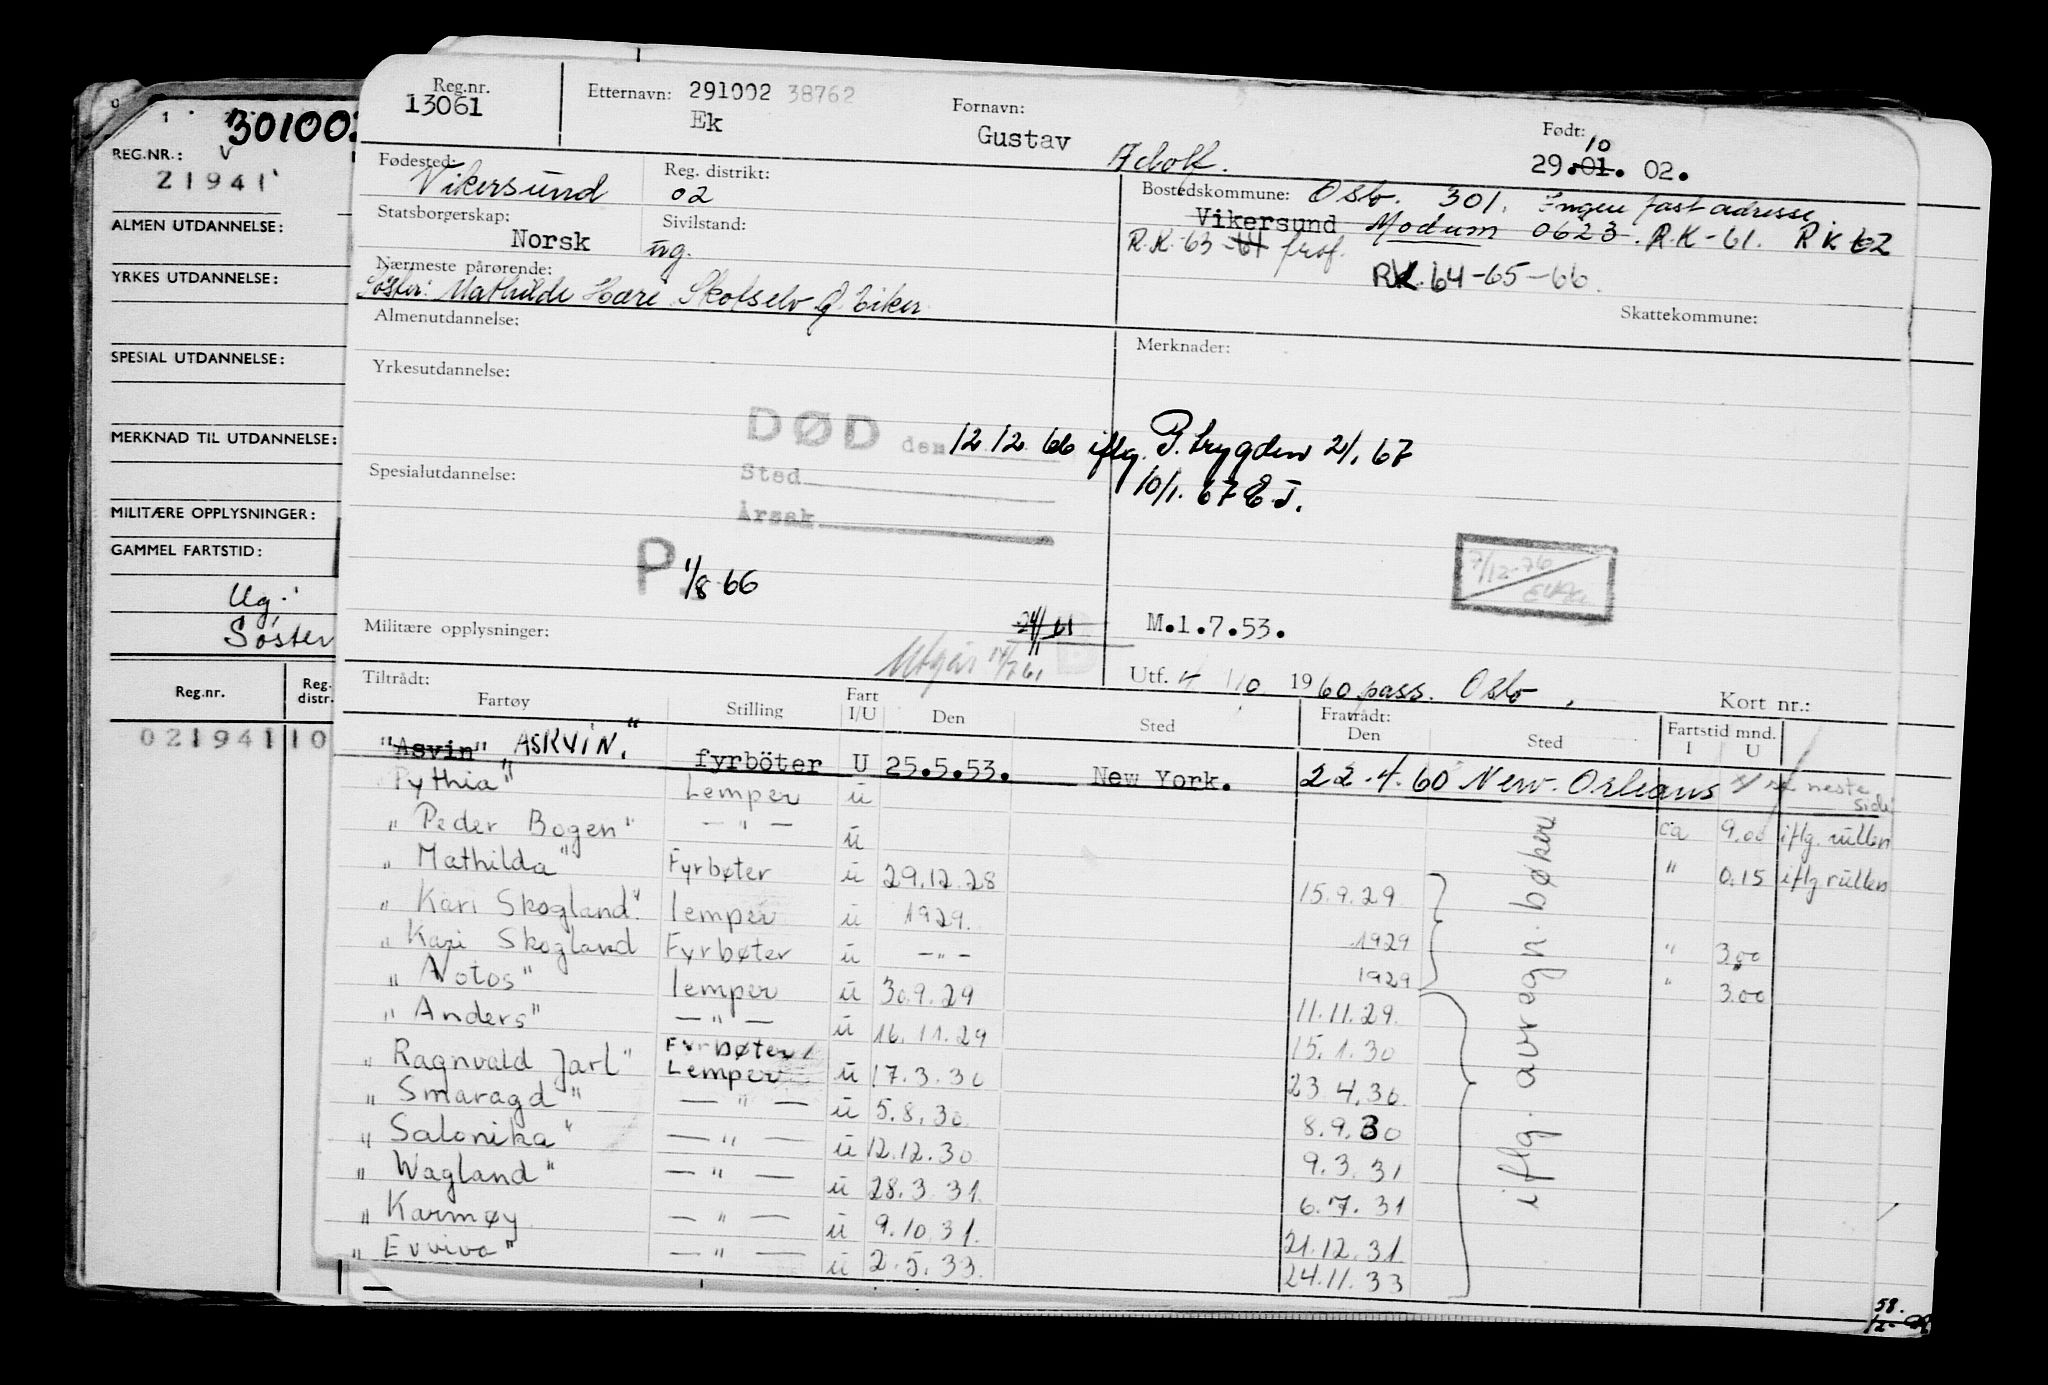 301002
REG.NR.: V
21941
ALMEN UTDANNELSE:
YRKES UTDANNELSE:
SPESIAL UTDANNELSE:
MERKNAD TIL UTDANNELSE:
MILITÆRE OPPLYSNINGER:
GAMMEL FARTSTID:
Ug.
Søster
Reg.nr. Reg. distr.
021941 10
Reg.nr. Etternavn: 291002 38762 Fornavn: Født:
13061 Ek Gustav Adolf. 29.01. 02. 10
Fødested: Vikersund Reg. distrikt: 02 Bostedskommune: Oslo. 301. Ingen fast adresse.
Statsborgerskap: Norsk Sivilstand: ug. Vikersund Modum 0623. R.K-61. RK 62
R.K-63-64
RK. 64-65-66.
Nærmeste pårørende:
Søster: Mathilde Hære Skotselv Ø. Eiker
Skattekommune:
Almenutdannelse: Merknader:
Yrkesutdannelse:
DØD den 12.12.66 iflg. P.trygden 2/1.67
10/1.67 E.J.
Spesialutdannelse: Sted
Årsak
P. 1/8 66
7/12-76
Militære opplysninger: M.1.7.53.
Utgår 14/7 61 B
Utf. 4 10 1960 pass. Oslo, Kort nr.:
Tiltrådt: Fratrådt: Fartstid mnd.
Fartøy Stilling Fart I/U Den Sted Den Sted I U
"Asvin" "ASKVIN." fyrböter U 25.5.53. New York. 22.4.60 New-Orleans neste side
Pythia" Lemper u ca 9.00 iflg. rullen
" Peder Bogen" — " — u " 0.15 iflg rullen
" Mathilda" Fyrbøter u 29.12.28 15.9.29
" Kari Skogland" lemper u 1929. 1929 " 3.00
" Kari Skogland Fyrbøter u — " — 1929 " 3.00
" Notos" lemper u 30.9.29 11.11.29.
" Anders" — " — u 16.11.29 15.1.30
" Ragnvald Jarl" Fyrbøter Lemper u 17.3.30 23 4.30
" Smaragd" — " — u 5.8.30 8.9.30
" Salonika" — " — u 12.12.30 9.3.31
" Wagland" — " — u 28.3.31. 6.7.31
" Karmøy — " — u 9.10.31. 21.12.31
" Evviva" — " — u 2.5.33. 24.11.33
iflg. avregn. bøker
58.